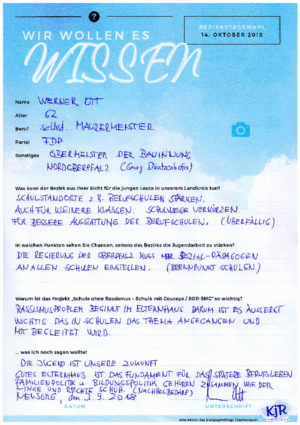 ?
BEZIRKSTAGSWAHL
14. OKTOBER 2018
WIR WOLLEN ES
WISSEN
Name WERNER OTT
Alter 62
Beruf selbst. MAURERMEISTER
Partei FDP
Sonstiges OBERMEISTER DER BAUINNUNG
NORDOBERPFALZ
Was kann der Bezirk aus Ihrer Sicht für die jungen Leute im Landkreis tun?
SCHULSTANDORTE z.B. BERUFSCHULEN STÄRKEN.
AUCH FÜR KLEINERE KLASSEN. SCHULWEGE VERKÜRZEN.
FÜR BESSERE AUSSTATTUNG DER BERUFSCHULEN. (ÜBERFÄLLIG)
In welchen Punkten sehen Sie Chancen, seitens des Bezirks die Jugendarbeit zu stärken?
DIE REGIERUNG DER OBERPFALZ MUSS MEHR SOZIAL-PÄDAGOGEN
AN ALLEN SCHULEN EINSTELLEN. (BRENNPUNKT SCHULEN)
Warum ist das Projekt „Schule ohne Rassismus - Schule mit Courage / SOR-SMC" so wichtig?
RASSISMUSPROBLEM BEGINNT IM ELTERNHAUS DARUM IST ES ÄUSSERST
WICHTIG DAS IN SCHULEN DAS THEMA ANGEGANGEN UND
MIT BEGLEITET WIRD.
... was ich noch sagen wollte!
DIE JUGEND IST UNSERE ZUKUNFT
GUTES ELTERNHAUS IST DAS FUNDAMENT FÜR DAS SPÄTERE BERUFSLEBEN
FAMILIENPOLITIK u. BILDUNGSPOLITIK GEHÖREN ZUSAMMEN WIE DER
LINKE UND RECHTE SCHUH. (NACHHOLBEDARF)
DATUM
UNTERSCHRIFT
KJR